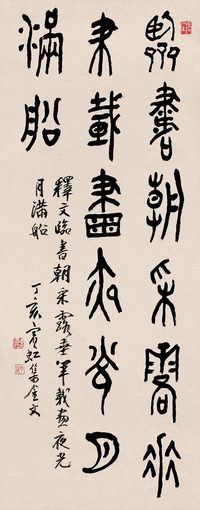 臨書朝采露垂
筆載畫夜光月
滿船
釋文臨書朝采露垂筆載畫夜光
月滿船
丁亥賓虹集金文